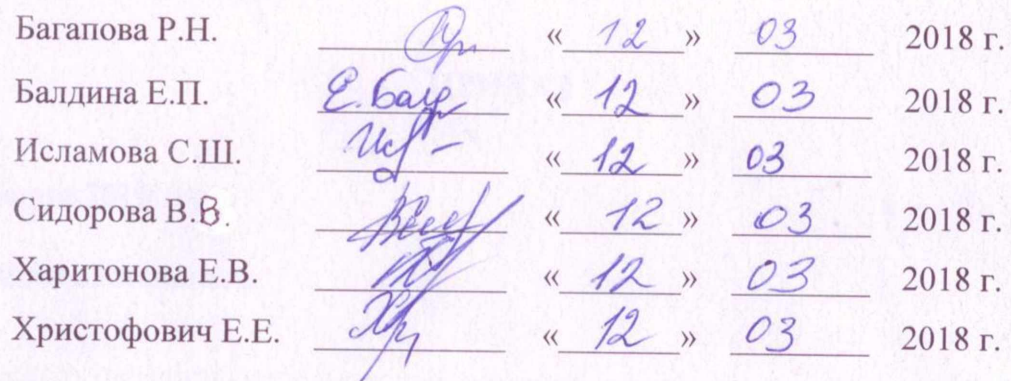 Багапова Р.Н. « 12 » 03 2018 г.
Балдина Е.П. Е.Балд « 12 » 03 2018 г.
Исламова С.Ш. « 12 » 03 2018 г.
Сидорова В.В. « 12 » 03 2018 г.
Харитонова Е.В. « 12 » 03 2018 г.
Христофович Е.Е. « 12 » 03 2018 г.